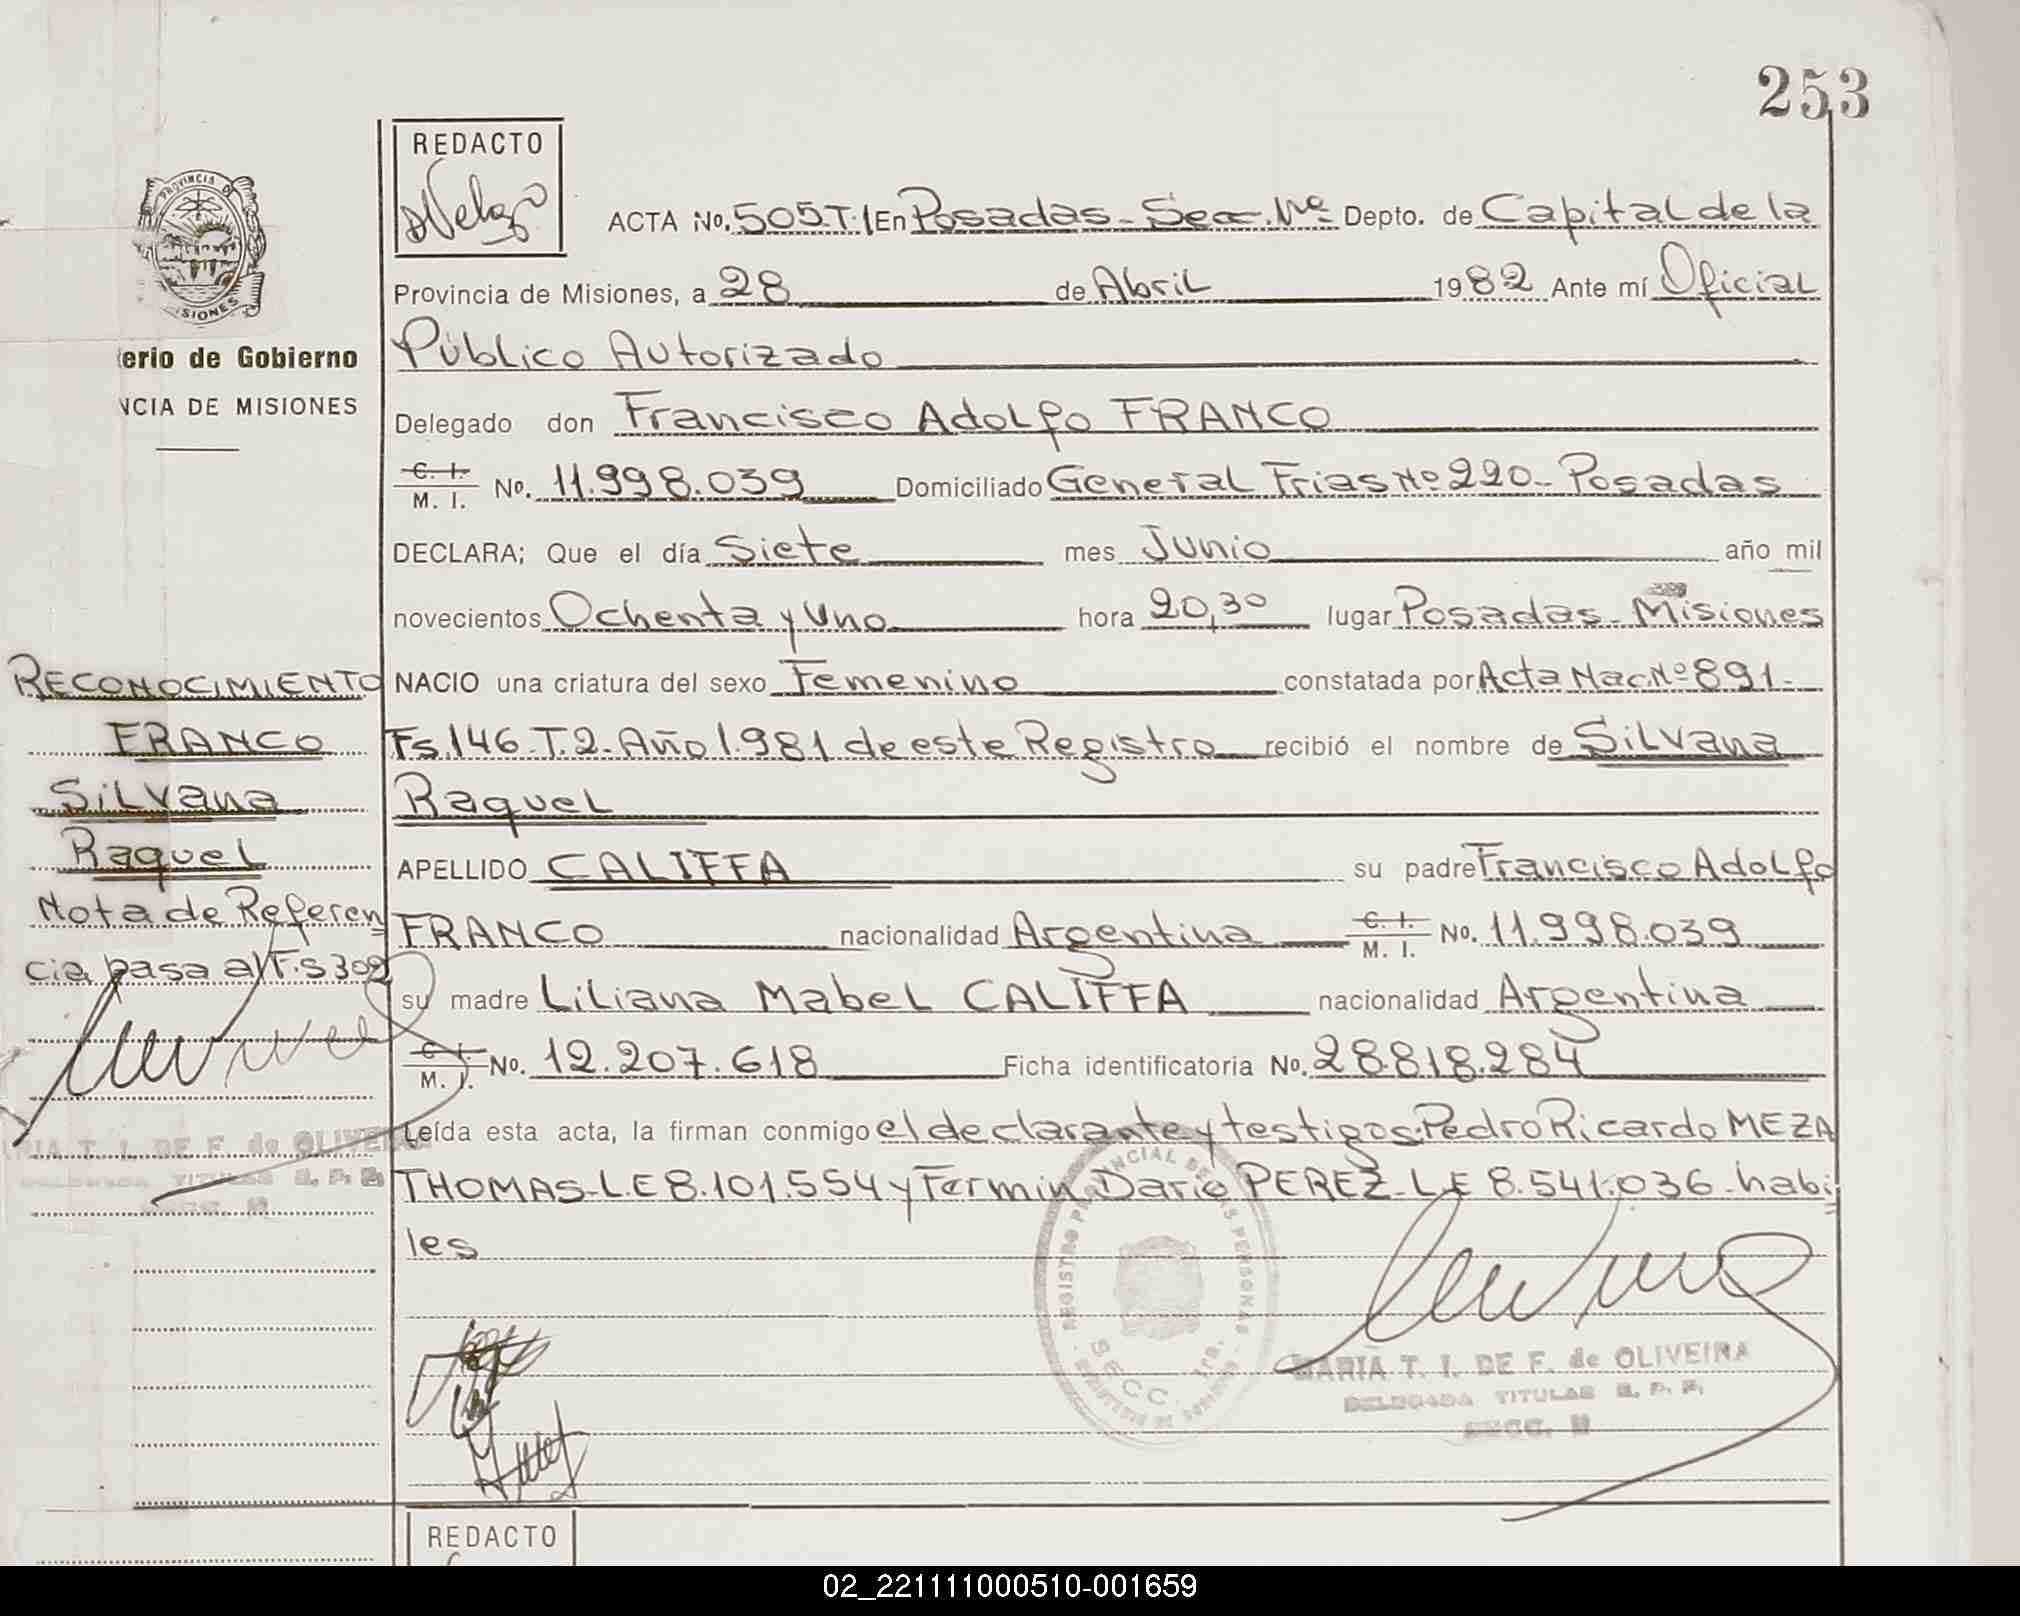 253
REDACTO
PROVINCIA DE
MISIONES
ACTA No. 505.T.1 En Posadas - Secc. Nº Depto. de Capital de la
Provincia de Misiones, a 28 de Abril 1982 Ante mí Oficial
erio de Gobierno
Público Autorizado
NCIA DE MISIONES
Delegado don Francisco Adolfo FRANCO
C. I.
M. I. No. 11.998.039 Domiciliado General Frias Nº 220 - Posadas
DECLARA; Que el día Siete mes Junio año mil
novecientos Ochenta y Uno hora 20,30 lugar Posadas - Misiones
RECONOCIMIENTO
NACIO una criatura del sexo Femenino constatada por Acta Nac. Nº 891 -
FRANCO
Fs. 146 - T. 2 - Año 1.981 de este Registro recibió el nombre de Silvana
Silvana
Raquel
Raquel
APELLIDO CALIFFA su padre Francisco Adolfo
Nota de Referen
FRANCO nacionalidad Argentina C. I.
M. I. No. 11.998.039
cia pasa al F.S 302
su madre Liliana Mabel CALIFFA nacionalidad Argentina
C. I.
M. I. No. 12.207.618 Ficha identificatoria No. 28.818.284
Leída esta acta, la firman conmigo el declarante y testigos: Pedro Ricardo MEZA
RIA T. I. DE F. de OLIVEIRA
THOMAS - L.E 8.101.554 y Fermin Dario PEREZ - L.E 8.541.036 - habi
les
REGISTRO PROVINCIAL DE LAS PERSONAS
SECC. 1ra.
MARIA T. I. DE F. de OLIVEIRA
DELEGADA TITULAR R. P. P.
REDACTO
02_221111000510-001659